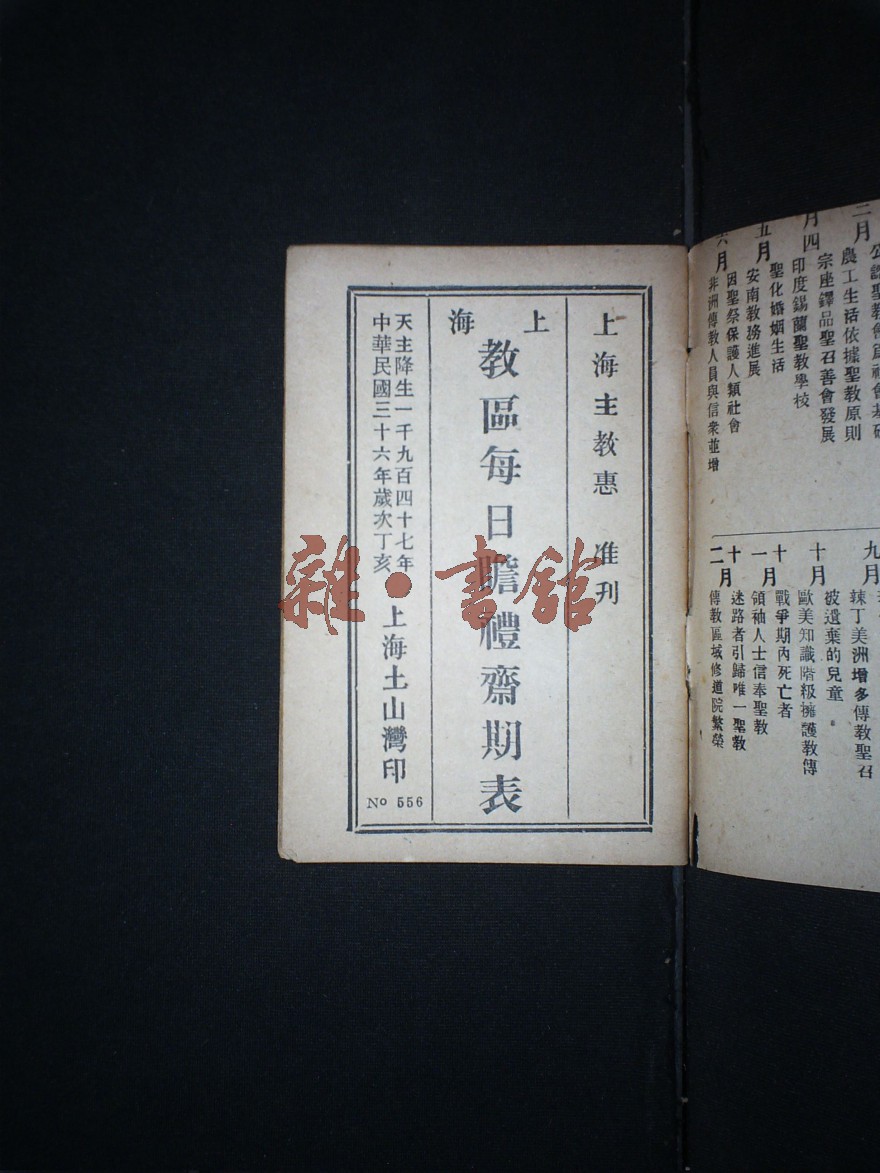 上海主教惠　准刊
上海
教區每日瞻禮齋期表
天主降生一千九百四十七年
中華民國三十六年歲次丁亥
上海土山灣印
No 556
雜·書館
農工生活依據聖教原則
宗座鐸品聖召善會發展
月四
印度錫蘭聖教學校
聖化婚姻生活
五月
安南教務進展
因聖祭保護人類社會
六月
非洲傳教人員與信衆並增
九月
辣丁美洲增多傳教聖召
被遺棄的兒童
十月
歐美知識階級擁護教傳
戰爭期內死亡者
十一月
領袖人士信奉聖教
迷路者引歸唯一聖教
十二月
傳教區域修道院繁榮